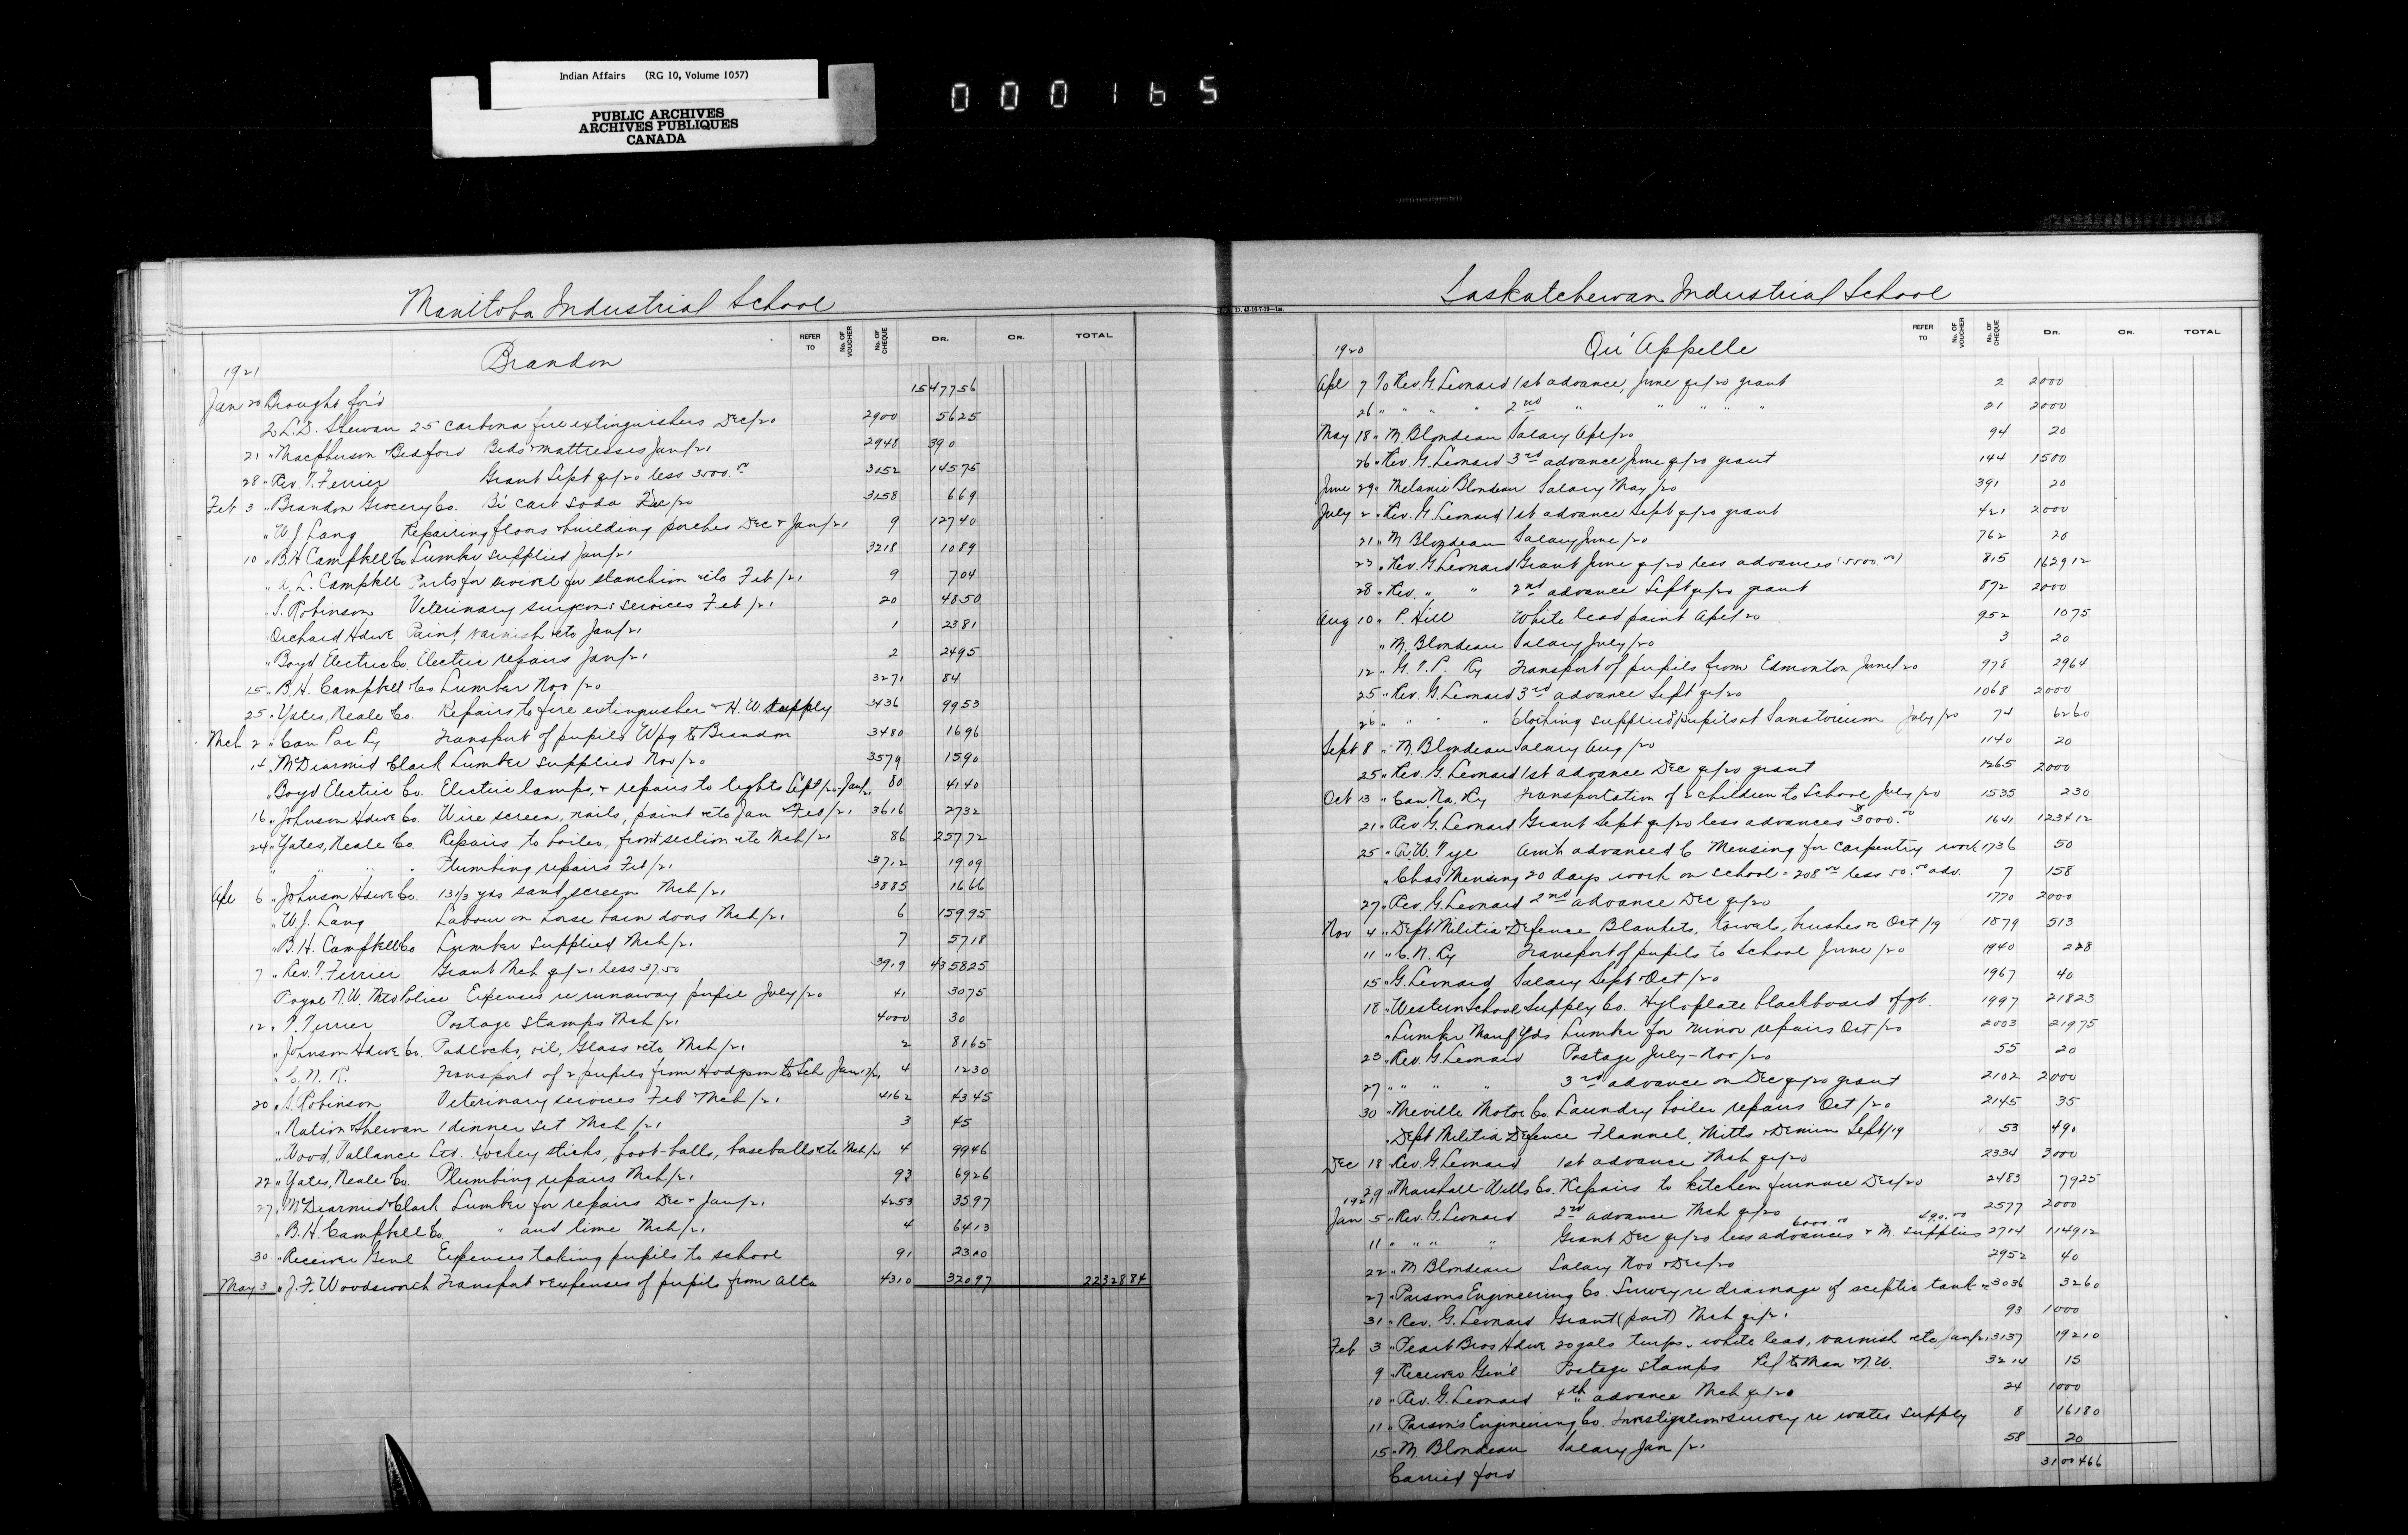 Indian Affairs (RG 10, Volume 1057)
PUBLIC ARCHIVES
ARCHIVES PUBLIQUES
CANADA
000165
Manitoba Industrial School
REFER TO No. OF VOUCHER No. OF CHEQUE DR. CR. TOTAL
Brandon
1921
Jan 20 Brought for'd 1547756
To L.D. Shewan 25 Carbona fire extinguishers Dec/20 2900 5625
21 " Macpherson Bedford Beds & mattresses Jan/21 2948 390
28 " Rev. T. Ferrier Grant Sept qr/20 less 3500.00 3152 14575
Feb 3 " Brandon Grocery Co. Bi carb soda Dec/20 3158 669
" W.J. Lang Repairing floors & building porches Dec & Jan/21 9 12740
10 " B.H. Campbell Co Lumber supplied Jan/21 3218 1089
" A.L. Campbell Parts for swivel for stanchion etc Feb/21 9 704
" S. Robinson Veterinary surgeon's services Feb/21 20 4850
Orchard Hdwe Paint, varnish etc Jan/21 1 2381
" Boyd Electric Co. Electric repairs Jan/21 2 2495
15 " B.H. Campbell Co Lumber Nov/20 3271 84
25 " Yates, Neale Co. Repairs to fire extinguisher & H.W. supply 3436 9953
Mch 2 " Can Pac Ry Transport of pupils Wpg to Brandon 3480 1696
14 " McDiarmid Clark Lumber supplied Nov/20 3579 1590
" Boyd Electric Co. Electric lamps, & repairs to lights Sept/20, Jan/21 80 4140
16 " Johnson Hdwe Co. Wire screen, nails, paint etc Jan & Feb/21 3616 2732
24 " Yates, Neale Co. Repairs to boiler, front section etc Mch/21 86 25772
" " " " Plumbing repairs Feb/21 3712 1909
Apl 6 " Johnson Hdwe Co. 13 1/3 yds sand screen Mch/21 3885 1666
" W.J. Lang Labour on horse barn doors Mch/21 6 15995
" B.H. Campbell Co Lumber supplied Mch/21 7 5718
7 " Rev. T. Ferrier Grant Mch qr/21 less 37.50 3919 435825
Royal N.W. Mtd Police Expenses re runaway pupil July/20 41 3075
12 " T. Ferrier Postage stamps Mch/21 4000 30
" Johnson Hdwe Co. Padlocks, oil, glass etc Mch/21 2 8165
" C.N.R. Transport of 2 pupils from Hodgson to Sch Jan 17/21 4 1230
20 " S. Robinson Veterinary services Feb & Mch/21 4162 4345
" Nation & Shewan 1 dinner set Mch/21 3 45
" Wood, Vallance Ltd. Hockey sticks, foot-balls, baseballs etc Mch/21 4 9946
22 " Yates, Neale Co. Plumbing repairs Mch/21 93 6926
27 " McDiarmid & Clark Lumber for repairs Dec & Jan/21 4253 3597
" B.H. Campbell Co. " and lime Mch/21 4 6413
30 " Receiver Genl Expenses taking pupils to school 91 2300
May 3 " J.F. Woodsworth Transport & expenses of pupils from Alta 4310 32097 2232884
Saskatchewan Industrial School
REFER TO No. OF VOUCHER No. OF CHEQUE DR. CR. TOTAL
Qu'Appelle
1920
Apl 7 To Rev. G. Leonard 1st advance, June qr/20 grant 2 2000
26 " " " " 2nd " " " " " 21 2000
May 18 " M. Blondeau Salary Apl/20 94 20
26 " Rev. G. Leonard 3rd advance June qr/20 grant 144 1500
June 29 " Melanie Blondeau Salary May/20 391 20
July 2 " Rev. G. Leonard 1st advance Sept qr/20 grant 421 2000
21 " M Blondeau Salary June/20 762 20
23 " Rev. G. Leonard Grant June qr/20 less advances (5500.00) 815 162912
28 " Rev. " " 2nd advance Sept qr/20 grant 872 2000
Aug 10 " P. Hill White lead paint Apl/20 952 1075
" M. Blondeau Salary July/20 3 20
12 " G.T.P. Ry Transport of pupils from Edmonton June/20 978 2964
25 " Rev. G. Leonard 3rd advance Sept qr/20 1068 2000
26 " " " " Clothing supplied pupils at Sanatorium July/20 74 6260
Sept 8 " M. Blondeau Salary Aug/20 1140 20
25 " Rev. G. Leonard 1st advance Dec qr/20 grant 1265 2000
Oct 13 " Can. Na. Ry Transportation of 2 children to School July/20 1535 230
21 " Rev. G. Leonard Grant Sept qr/20 less advances 1641 123412
25 " R.W. Tye Amt advanced C Mensing for carpentry work 1736 50
" Chas Mensing 20 days work on school - 208.00 less 50.00 adv. 7 158
27 " Rev. G. Leonard 2nd advance Dec qr/20 1770 2000
Nov 4 " Dept Militia & Defence Blankets, towels, brushes &c Oct/19 1879 513
11 " C.N. Ry Transport of pupils to School June/20 1940 228
15 " G. Leonard Salary Sept & Oct/20 1967 40
18 " Western School Supply Co. Hyloplate blackboard 1997 21823
" Lumber Manf Yds Lumber for minor repairs Oct/20 2003 21975
23 " Rev. G. Leonard Postage July-Nov/20 55 20
27 " " " " 3rd advance on Dec qr/20 grant 2102 2000
30 " Melville Motor Co. Laundry boiler repairs Oct/20 2145 35
" Dept Militia Defence Flannel, Mitts & Denim Sept/19 53 490
Dec 18 " Rev. G. Leonard 1st advance Mch qr/20 2334 3000
29 " Marshall-Wells Co. Repairs to kitchen furnace Dec/20 2483 7925
1921
Jan 5 " Rev. G. Leonard 2nd advance Mch qr/20 2577 2000
11 " " " " Grant Dec qr/20 less advances 6000.00 & M. supplies 490.00 2714 114912
22 " M Blondeau Salary Nov & Dec/20 2952 40
27 " Parsons Engineering Co. Survey re drainage of sceptic tank 3036 3260
31 " Rev. G. Leonard Grant (part) Mch qr/21 93 1000
Feb 3 " Peart Bros Hdwe 20 gals turps. white lead, varnish etc Jan/21 3137 19210
9 " Receiver Genl Postage stamps 3214 15
10 " Rev. G. Leonard 4th advance Mch qr/20 24 1000
11 " Parsons Engineering Co. Investigation & survey re water supply 8 16180
15 " M Blondeau Salary Jan/21 58 20
Carried ford 3100466